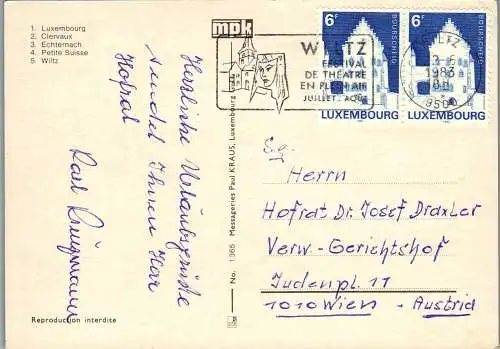 1. Luxembourg
2. Clervaux
3. Echternach
4. Petite Suisse
5. Wiltz
mpk
WILTZ
FESTIVAL
DE THEATRE
EN PLEIN AIR
JUILLET - AOUT
6F BOURSCHEID
LUXEMBOURG
6F BOURSCHEID
LUXEMBOURG
WILTZ
1983
9500
Herrliche Urlaubsgrüsse
sendet Ihnen Herr
Hofrat
Karl
No. 1365 Messageries Paul KRAUS, Luxembourg
Reproduction interdite
S.g.
Herrn
Hofrat Dr. Josef Draxler
Verw.-Gerichtshof
Judenpl. 11
1010 Wien - Austria